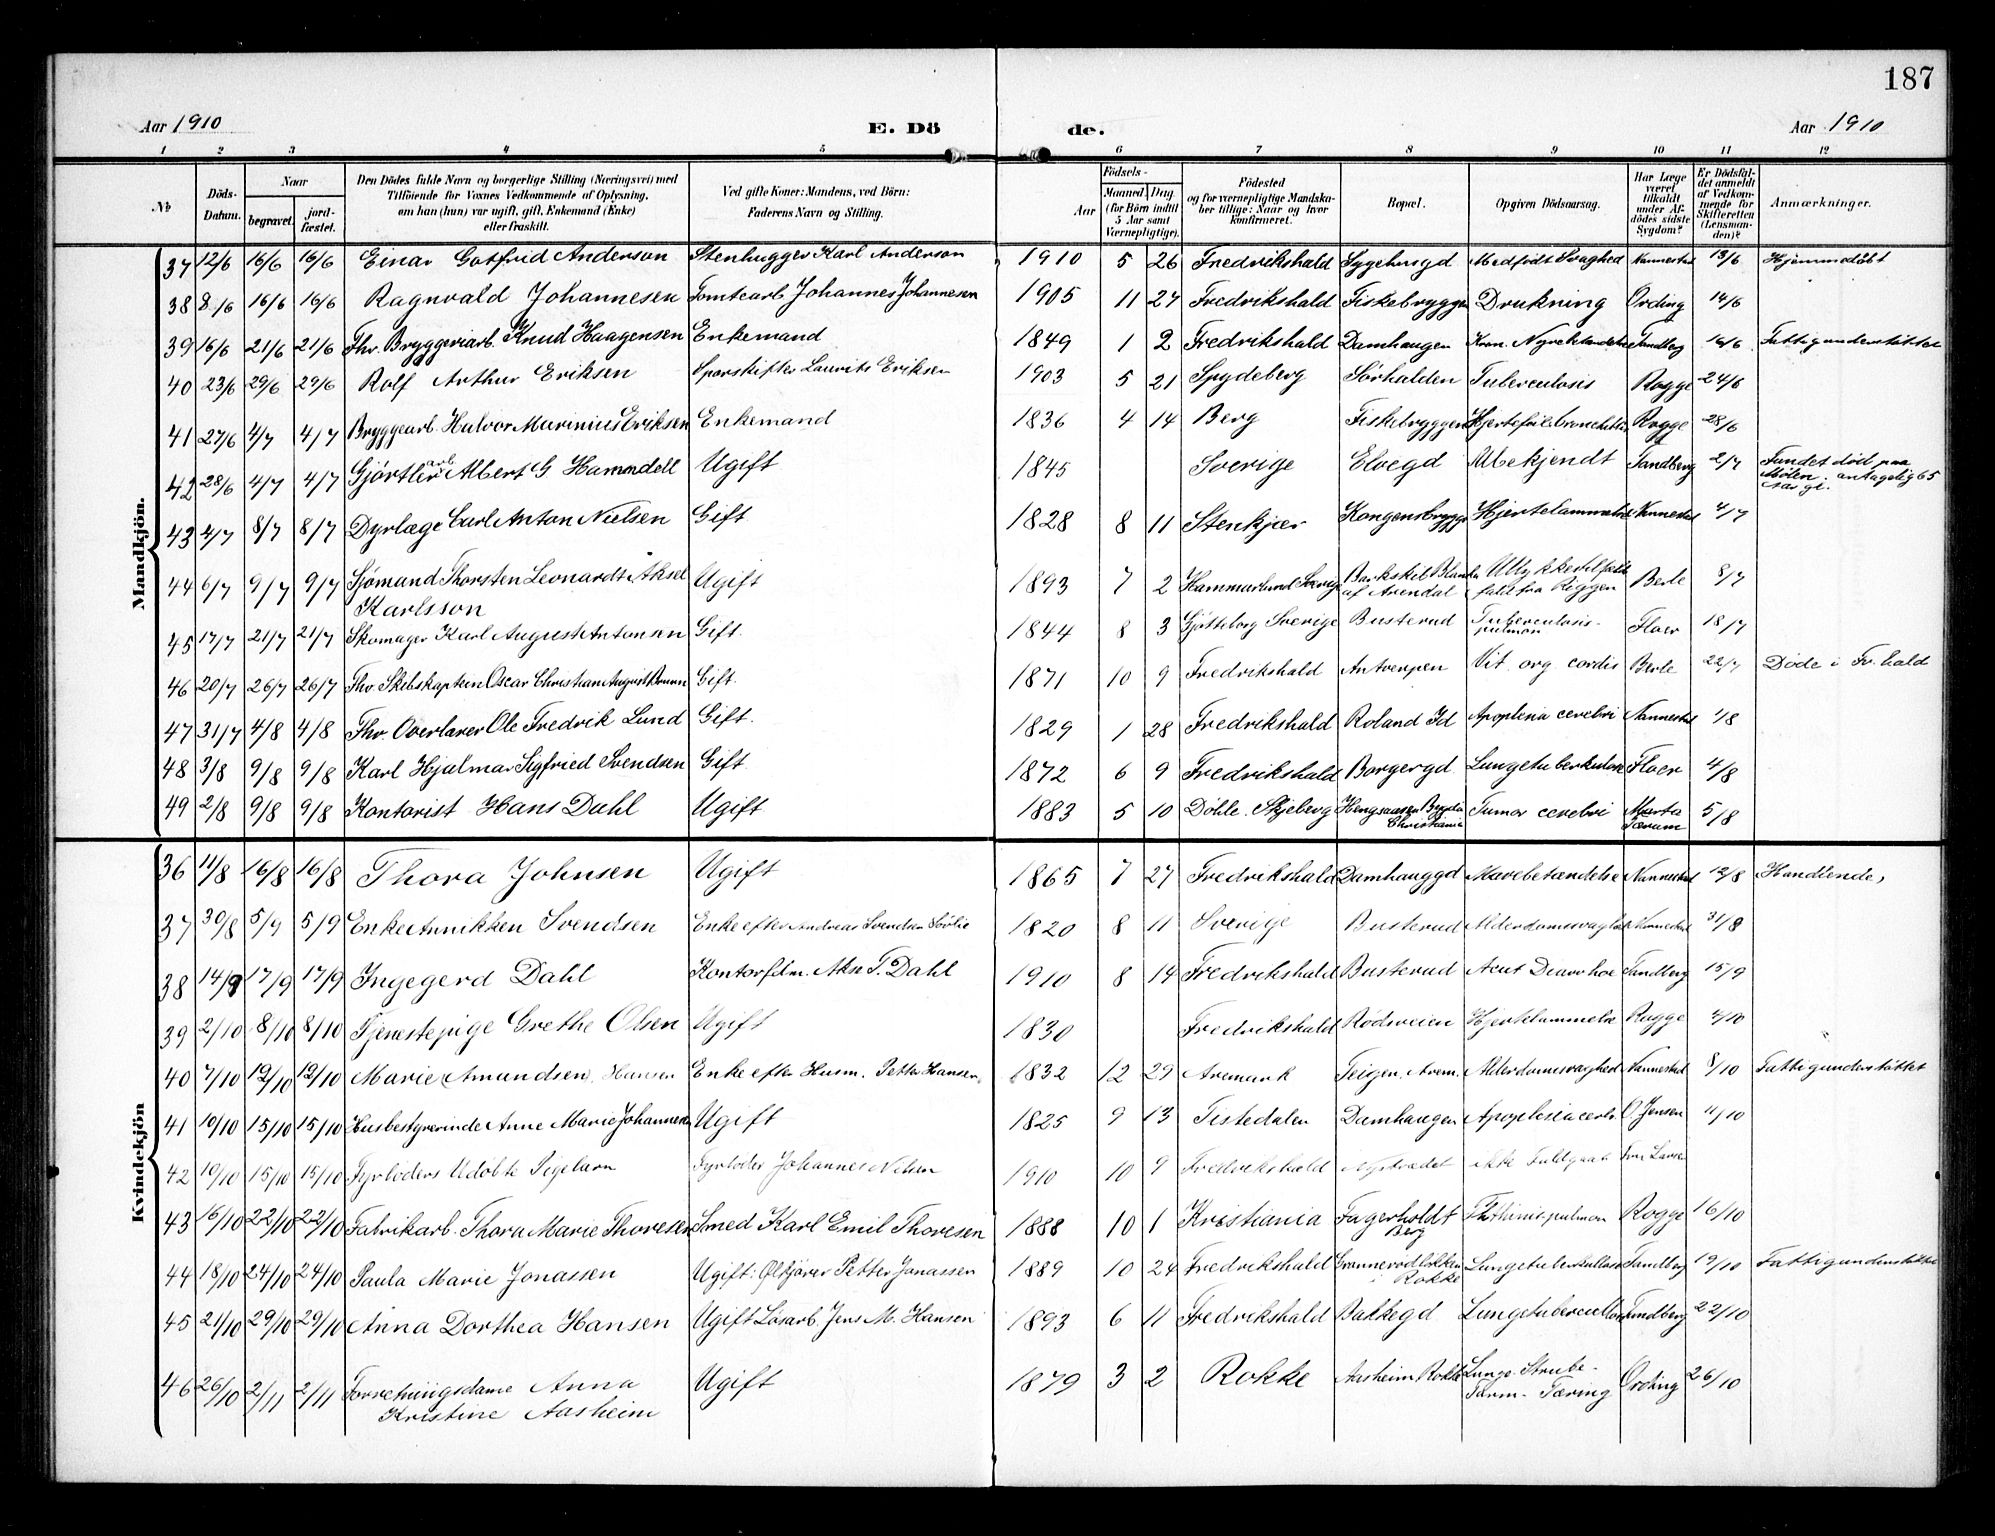 187
Aar 1910 E. Dö de. Aar 1910
1 2 3 4 5 6 7 8 9 10 11 12
№ Döds-Datum. Naar begravet. jord-fæstet. Den Dödes fulde Navn og borgerlige Stilling (Næringsvei) med Tilföiende for Voxnes Vedkommende af Oplysning, om han (hun) var ugift, gift, Enkemand (Enke) eller fraskilt. Ved gifte Koner: Mandens, ved Börn: Faderens Navn og Stilling. Födsels- Aar Maaned Dag (for Börn indtil 5 Aar samt Værnepligtige). Födested og for værnepligtige Mandskaber tillige: Naar og hvor konfirmeret. Bopæl. Opgiven Dödsaarsag. Har Læge været tilkaldt under Afdödes sidste Sygdom? Er Dödsfaldet anmeldt af Vedkommende for Skifteretten (Lensmanden)? Anmærkninger.
Mandkjön.
37 12/6 16/6 16/6 Einar Gotfrid Anderson Stenhugger Karl Anderson 1910 5 26 Fredrikshald Sygehusgd Medfødt Svaghed Nannestad 13/6 Hjemmedøbt
38 8/6 16/6 16/6 Ragnvald Johannesen Tomtearb Johannes Johannesen 1905 11 27 Fredrikshald Fiskebryggen Drukning Ording 14/6
39 16/6 21/6 21/6 Fhv. Bryggeriarb. Knud Haagensen Enkemand 1849 1 2 Fredrikshald Damhaugen Kron. Sandberg 16/6 Fattigunderstøttet
40 23/6 29/6 29/6 Rolf Arthur Eriksen Sporskifter Laurits Eriksen 1903 5 21 Spydeberg Sørhalden Tuberculosis Rogge 24/6
41 27/6 4/7 4/7 Bryggearb. Halvor Marinius Eriksen Enkemand 1836 4 14 Berg Fiskebryggen Rogge 28/6
42 28/6 4/7 4/7 Gjørtlerarb Albert G. Hammdell Ugift 1845 Sverige Elvegd Ubekjendt Sandberg 2/7 Fundet død paa
Mølen. antagelig 65
Aar gl.
43 4/7 8/7 8/7 Dyrlæge Carl Anton Nielsen Gift 1828 8 11 Stenkjær Kongensbrygge Hjertelammelse Nannestad 4/7
44 6/7 9/7 9/7 Sjømand Thorsten Leonardt Aksel Ugift 1893 7 2 Hammarlund Sverige Barkskib Blanka Ulykkestilfæld Berle 8/7
Karlsson af Arendal faldt fra Riggen
45 17/7 21/7 21/7 Skomager Karl August Antonsen Gift. 1844 8 3 Gjøtteborg Sverige Busterud Tuberculosis- Floer 18/7
pulmon
46 20/7 26/7 26/7 Fhv. Skibskaptein Oscar Christian August Gift. 1871 10 9 Fredrikshald Antverpen Vit. org. cordis Berle 22/7 Døde i Fr.hald
47 31/7 4/8 4/8 Fhv. Overlærer Ole Fredrik Lund Gift. 1829 1 28 Fredrikshald Roland Id Apoplexia cerebri Nannestad 1/8
48 3/8 9/8 9/8 Karl Hjalmar Sigfried Svendsen Gift. 1872 6 9 Fredrikshald Borgergd Lungetuberkulose Floer 4/8
49 2/8 9/8 9/8 Kontorist Hans Dahl Ugift 1883 5 10 Døhle. Skjeberg Christiania Tumor cerebri 5/8
Kvindekjön
36 11/8 16/8 16/8 Thora Johnsen Ugift 1865 7 27 Fredrikshald Damhauggd Mavebetændelse Nannestad 12/8 Handlende,
37 30/8 5/9 5/9 Enke Annikken Svendsen Enke efter Andreas Svendsen Sørlie 1820 8 11 Sverige Busterud Alderdomssvaghed Nannestad 31/8
38 14/9 17/9 17/9 Ingegerd Dahl Kontorfilm. T. Dahl 1910 8 14 Fredrikshald Busterud Acut Diarrhoe Sandberg 15/9
39 2/10 8/10 8/10 Tjenestepige Grethe Olsen Ugift 1830 Fredrikshald Rødsveien Hjertelammelse Rogge 4/10
40 7/10 12/10 12/10 Marie Amundsen Hansen Enke efter Husm. Petter Hansen, 1832 12 29 Aremark Teigen, Arem. Alderdomssvaghed Nannestad 8/10 Fattigunderstøttet
41 10/10 15/10 15/10 Husbestyrerinde Anne Marie Johannesen Ugift 1825 9 13 Tistedalen Damhaugen Apoplexia cerb. O. Jensen 11/10
42 10/10 15/10 15/10 Fyrbøders Udøbte Pigebarn Fyrbøder Johannes Nilsen 1910 10 9 Fredrikshald ikke Fuldgaat Larsen
43 16/10 22/10 22/10 Fabrikarb. Thora Marie Thoresen Smed Karl Emil Thoresen 1888 10 1 Kristiania Fagerholdt Pthisis pulmon Rogge 16/10
Berg
44 18/10 24/10 24/10 Paula Marie Jonassen Ugift: Ølkjører Petter Jonassen 1889 10 24 Fredrikshald Grønnerødløkken Lungetuberkullose Sandberg 19/10 Fattigunderstøttet
i Rokke
45 21/10 29/10 29/10 Anna Dorthea Hansen Ugift Løsarb. Jens M. Hansen 1893 6 11 Fredrikshald Bakkegd Lungetuberculose Sandberg 22/10
46 26/10 2/11 2/11 Forretningsdame Anna Ugift 1879 3 2 Rokke Aasheim Rokke Lunge-Strube- Ording 26/10
Kristine Aasheim Tarm-Tæring